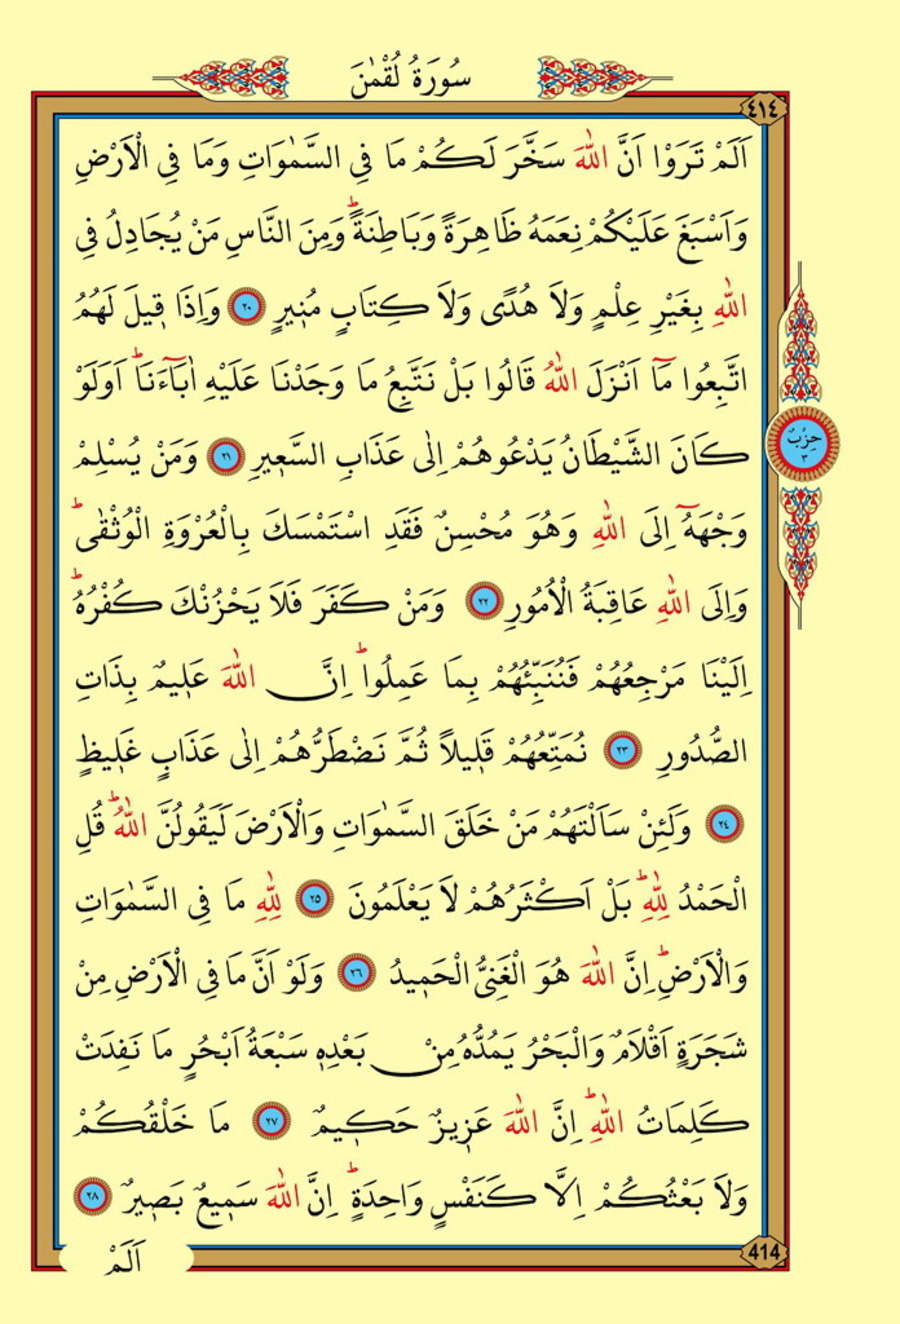 سُورَةُ لُقْمٰنَ
٤١٤
اَلَمْ تَرَوْا اَنَّ اللّٰهَ سَخَّرَ لَكُمْ مَا فِي السَّمٰوَاتِ وَمَا فِي الْاَرْضِ
وَاَسْبَغَ عَلَيْكُمْ نِعَمَهُ ظَاهِرَةً وَبَاطِنَةًۜ وَمِنَ النَّاسِ مَنْ يُجَادِلُ فِي
اللّٰهِ بِغَيْرِ عِلْمٍ وَلَا هُدًى وَلَا كِتَابٍ مُنٖيرٍ ﴿٢٠﴾ وَاِذَا قٖيلَ لَهُمُ
اتَّبِعُوا مَٓا اَنْزَلَ اللّٰهُ قَالُوا بَلْ نَتَّبِعُ مَا وَجَدْنَا عَلَيْهِ اٰبَٓاءَنَاۜ اَوَلَوْ
كَانَ الشَّيْطَانُ يَدْعُوهُمْ اِلٰى عَذَابِ السَّعٖيرِ ﴿٢١﴾ وَمَنْ يُسْلِمْ
حِزْبٌ
٣
وَجْهَهُٓ اِلَى اللّٰهِ وَهُوَ مُحْسِنٌ فَقَدِ اسْتَمْسَكَ بِالْعُرْوَةِ الْوُثْقٰىۜ
وَاِلَى اللّٰهِ عَاقِبَةُ الْاُمُورِ ﴿٢٢﴾ وَمَنْ كَفَرَ فَلَا يَحْزُنْكَ كُفْرُهُۜ
اِلَيْنَا مَرْجِعُهُمْ فَنُنَبِّئُهُمْ بِمَا عَمِلُواۜ اِنَّ اللّٰهَ عَلٖيمٌ بِذَاتِ
الصُّدُورِ ﴿٢٣﴾ نُمَتِّعُهُمْ قَلٖيلاً ثُمَّ نَضْطَرُّهُمْ اِلٰى عَذَابٍ غَلٖيظٍ
﴿٢٤﴾ وَلَئِنْ سَاَلْتَهُمْ مَنْ خَلَقَ السَّمٰوَاتِ وَالْاَرْضَ لَيَقُولُنَّ اللّٰهُۜ قُلِ
الْحَمْدُ لِلّٰهِۜ بَلْ اَكْثَرُهُمْ لَا يَعْلَمُونَ ﴿٢٥﴾ لِلّٰهِ مَا فِي السَّمٰوَاتِ
وَالْاَرْضِۜ اِنَّ اللّٰهَ هُوَ الْغَنِيُّ الْحَمٖيدُ ﴿٢٦﴾ وَلَوْ اَنَّ مَا فِي الْاَرْضِ مِنْ
شَجَرَةٍ اَقْلَامٌ وَالْبَحْرُ يَمُدُّهُ مِنْ بَعْدِهٖ سَبْعَةُ اَبْحُرٍ مَا نَفِدَتْ
كَلِمَاتُ اللّٰهِۜ اِنَّ اللّٰهَ عَزٖيزٌ حَكٖيمٌ ﴿٢٧﴾ مَا خَلْقُكُمْ
وَلَا بَعْثُكُمْ اِلَّا كَنَفْسٍ وَاحِدَةٍۜ اِنَّ اللّٰهَ سَمٖيعٌ بَصٖيرٌ ﴿٢٨﴾
414
اَلَمْ